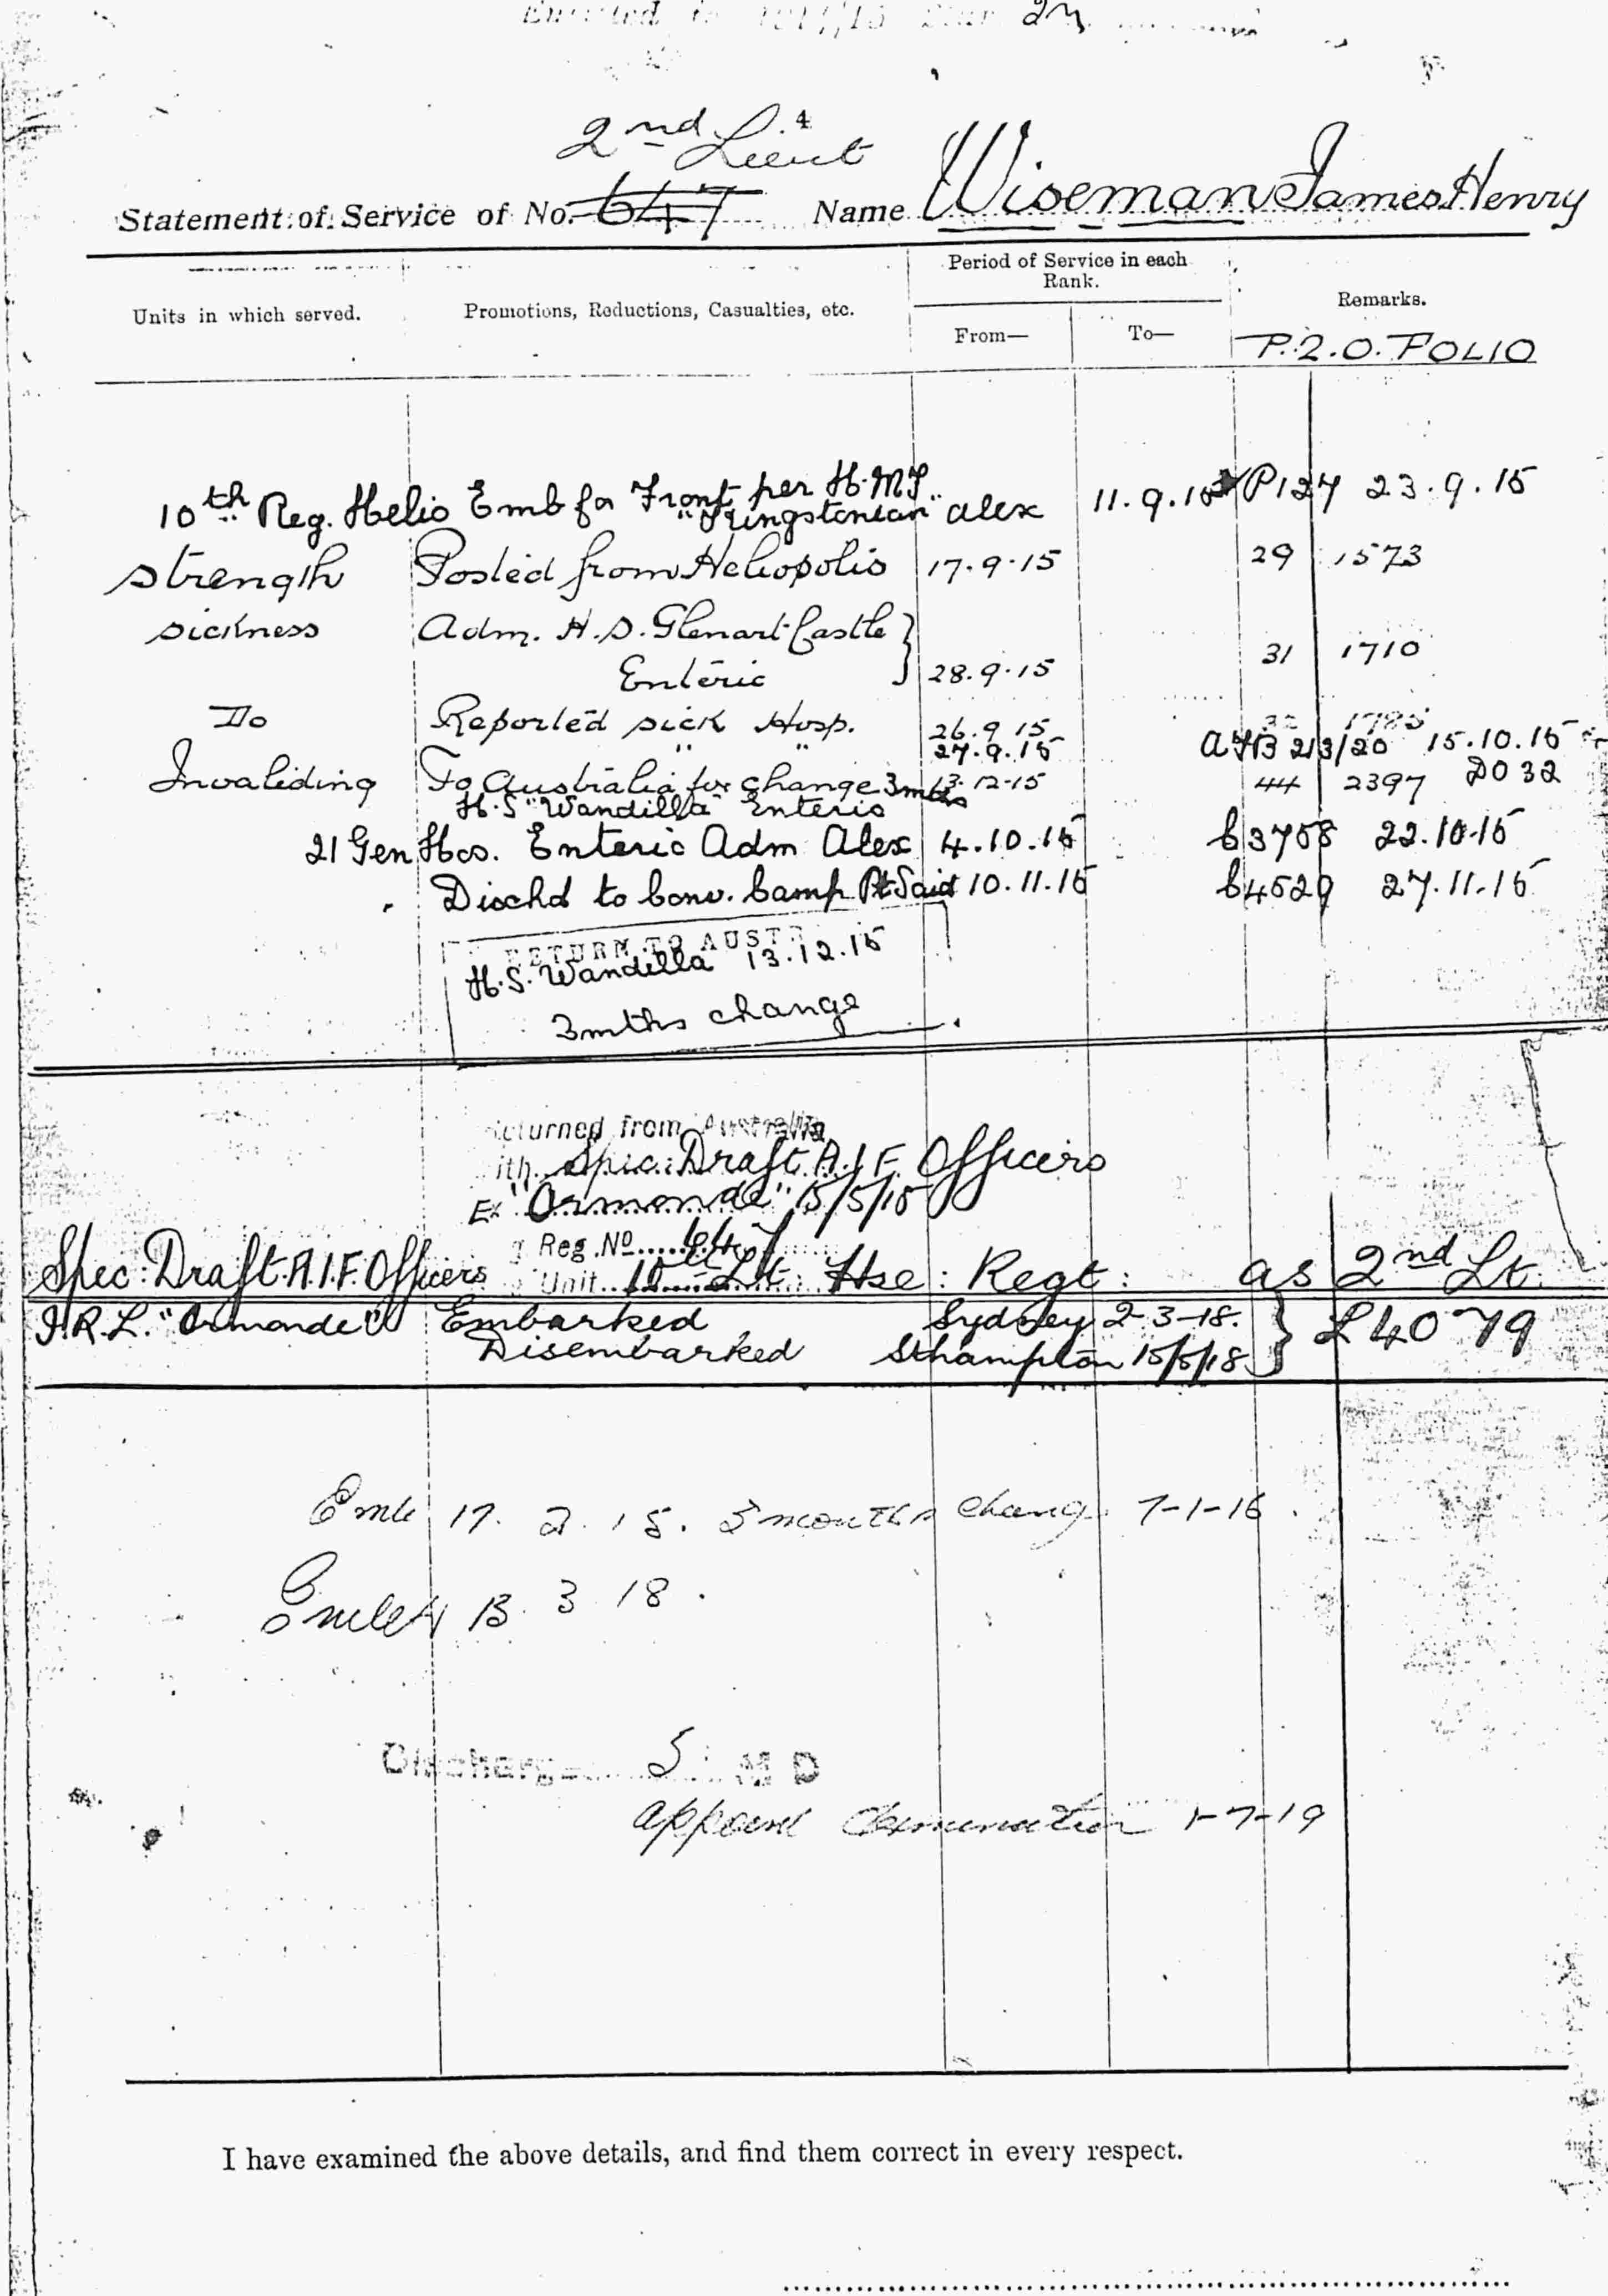 2nd Lieut
Statement of Service of No. 647 Name Wiseman James Henry
Units in which served. Promotions, Reductions, Casualties, etc. Period of Service in each Rank. From— To— Remarks.
P.2.O. FOLIO
10th Reg. Helio Emb for Front per H.M.T. "Kingstonian" Alex 11.9.15 P127 23.9.15
Strength Posted from Heliopolis 17.9.15 29 1573
Sickness Adm. H.S. Glenart Castle }
Enteric } 28.9.15 31 1710
Do Reported sick Hosp. 26.9.15
" " 27.9.15 213/20 15.10.15
Invaliding To Australia for change 3mths 13.12.15 44 2397 DO 32
H.S "Wandilla" Enteric
21 Gen Hos. Enteric Adm Alex 4.10.15 C3758 22.10.15
Dischd to Conv. Camp Pt Said 10.11.15 C4529 27.11.15
RETURN TO AUST
H.S. Wandilla 13.12.15
3mths change
eturned from Australia
ith Spec: Draft A.I.F. Officers
Ex "Ormonde" 15/5/18
Reg. No 647
Spec: Draft A.I.F. Officers Unit 10 Lt: Hse: Regt: as 2nd Lt.
"Ormonde" Embarked Sydney 2-3-18. } L4079
Disembarked Sthampton 15/5/18 }
Emb 17. 2. 15. 3 months change 7-1-16.
3 18.
Discharge 5 M D
appoint termination 1-7-19
I have examined the above details, and find them correct in every respect.